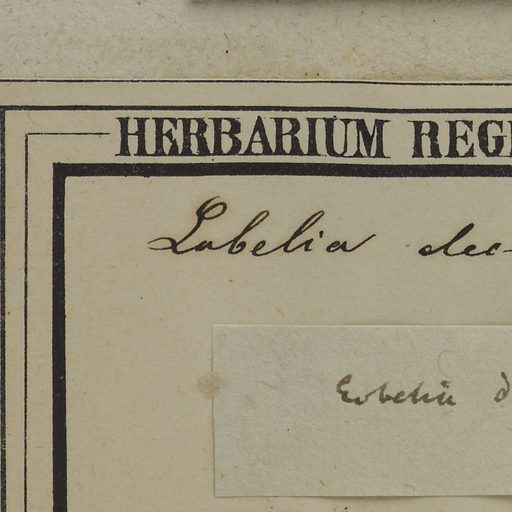 HERBARIUM REGI
Lobelia dec
Lobelia d